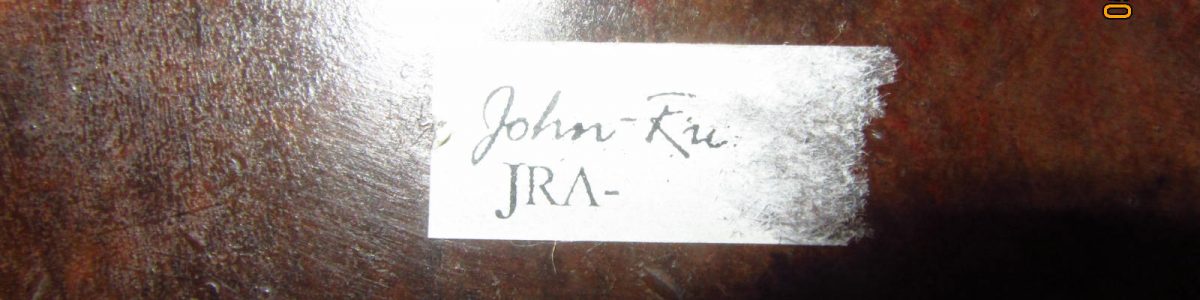 John-Ru
JRA-